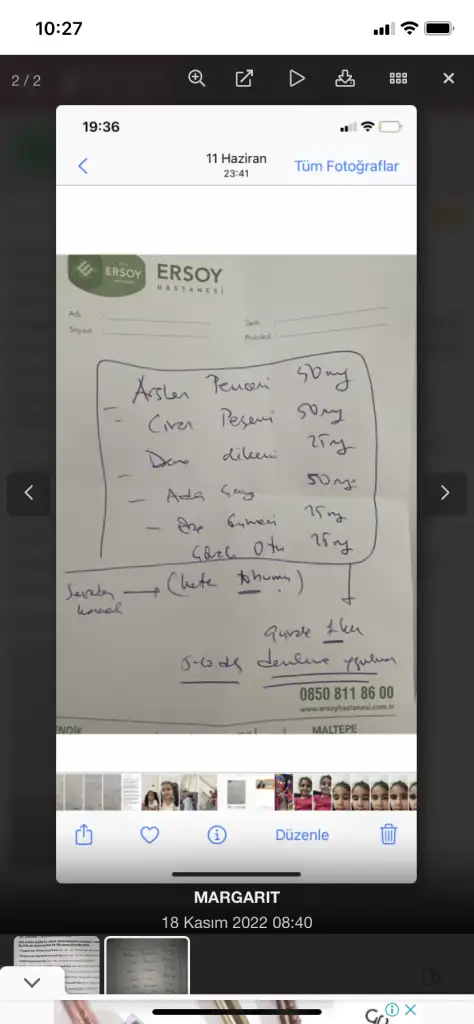 10:27
2 / 2
19:36
11 Haziran
23:41
Tüm Fotoğraflar
ERSOY
ERSOY
HASTANESİ
Adı :
Soyadı :
Tarih :
Protokol :
- Arslan Pencesi 50 mg
- Civan Perçemi 50 mg
Deve dikeni 25 mg
- Ada Çayı 50 mg
- 25 mg
Otu 25 mg
(keten tohumu)
günde 1 kez
5-10 dk demleme
0850 811 86 00
www.ersoyhastanesi.com.tr
MALTEPE
Düzenle
MARGARIT
18 Kasım 2022 08:40